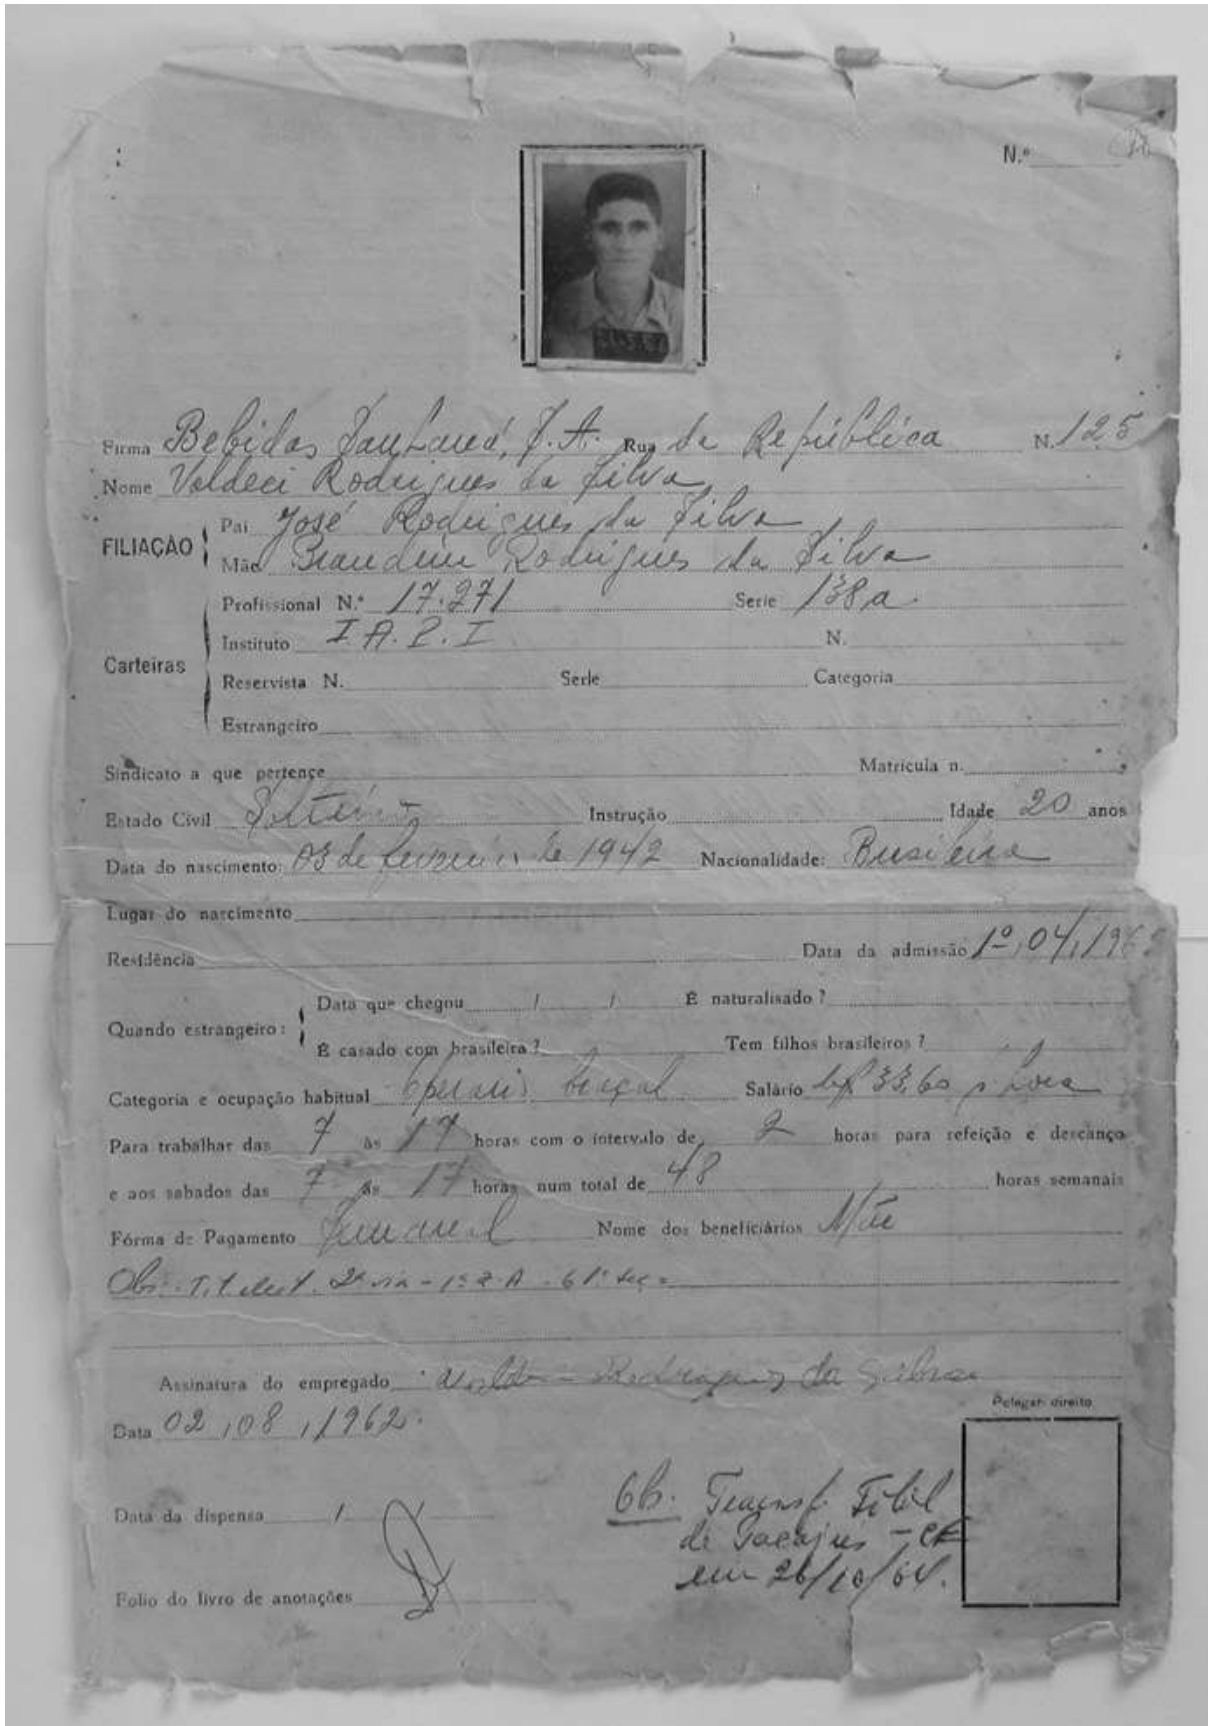 N.º
Firma Bebidas S.A. Rua da República N. 125
Nome Valdeci Rodrigues da Silva
FILIAÇÃO
Pai José Rodrigues da Silva
Mãe Rodrigues da Silva
Carteiras
Profissional N.º 17.271 Serie 138a
Instituto I A. P. I N.
Reservista N. Serie Categoria
Estrangeiro
Sindicato a que pertence Matricula n.
Estado Civil Solteiro Instrução Idade 20 anos
Data do nascimento: 03 de fevereiro de 1942 Nacionalidade: Brasileira
Lugar do nascimento
Residência Data da admissão 1º/04/196
Quando estrangeiro:
Data que chegou / / É naturalisado?
É casado com brasileira? Tem filhos brasileiros?
Categoria e ocupação habitual Operario braçal Salário 33,60 p. hora
Para trabalhar das 7 às 17 horas com o intervalo de 2 horas para refeição e descanço
e aos sabados das 7 às 17 horas num total de 48 horas semanais
Fórma de Pagamento Semanal Nome dos beneficiários Mãe
Obs:
Assinatura do empregado Rodrigues da Silva
Data 02/08/1962.
Polegar direito
Data da dispensa /
Ob. Transf. Filial
de Pacajus - CE
em 26/10/64.
Folio do livro de anotações